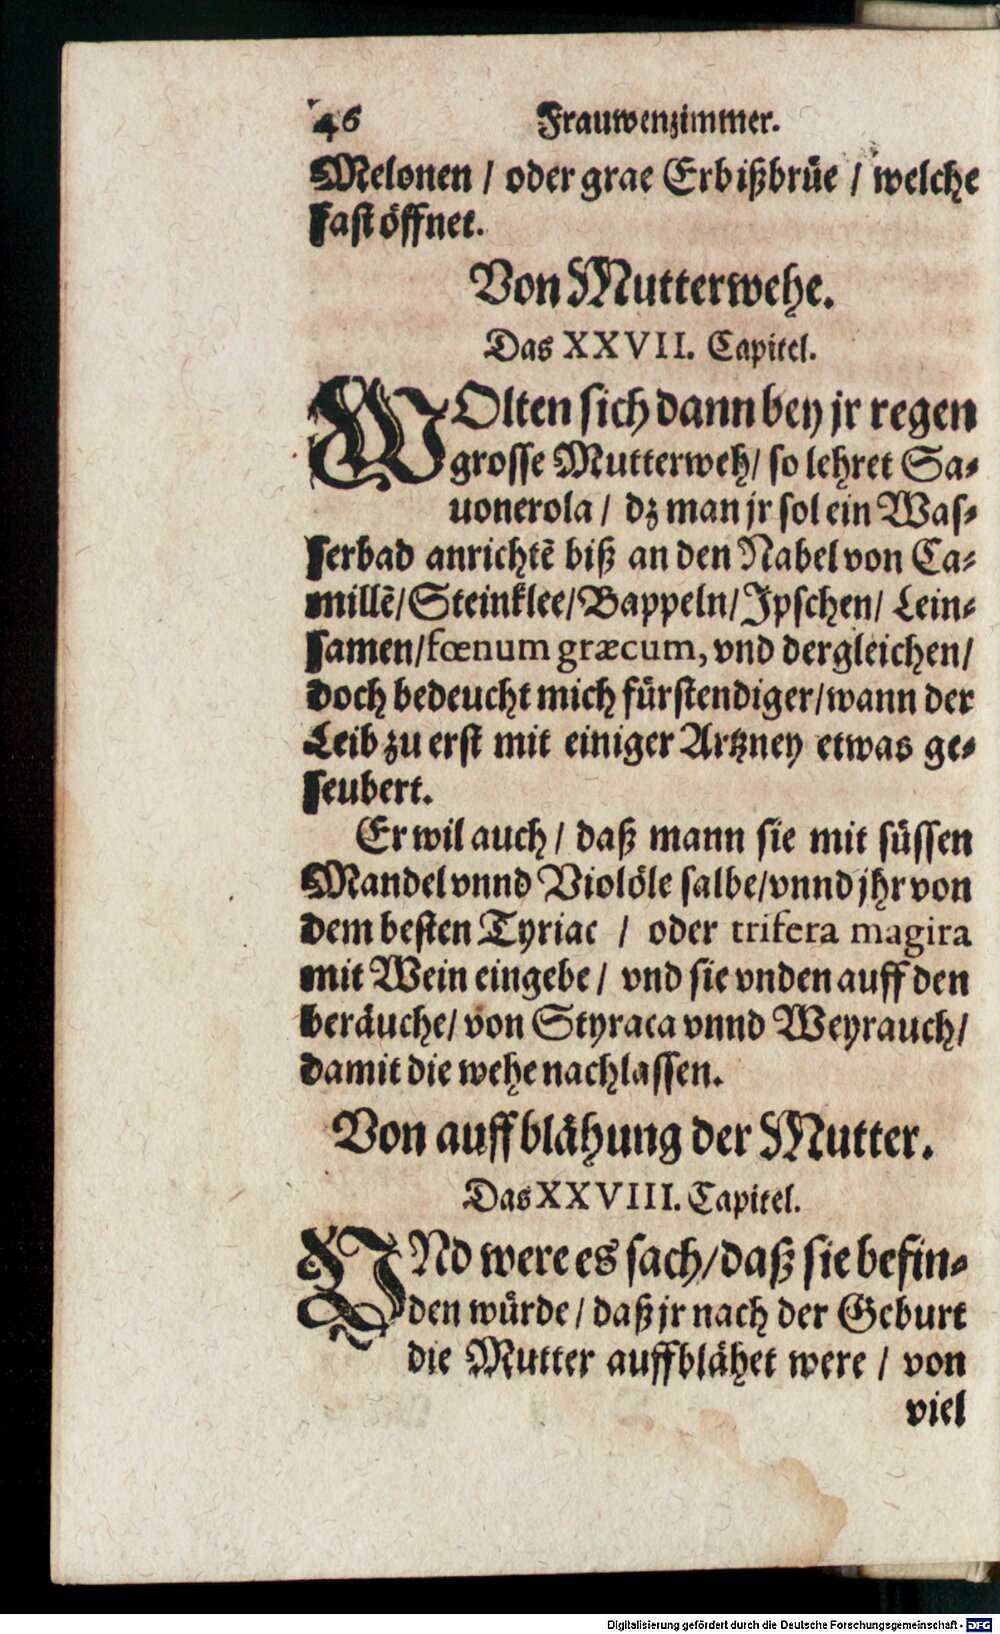 46 Frauwenzimmer.
Melonen / oder grae Erbißbrüe / welche
fast öffnet.
Von Mutterwehe.
Das XXVII. Capitel.
WOlten sich dann bey jr regen
grosse Mutterweh/ so lehret Sa⸗
uonerola / dz man jr sol ein Was⸗
serbad anrichtē biß an den Nabel von Ca⸗
millē/Steinklee/Bappeln/Ipschen/ Lein⸗
samen/fœnum græcum, vnd dergleichen/
doch bedeucht mich fürstendiger/wann der
Leib zu erst mit einiger Artzney etwas ge⸗
seubert.
Er wil auch / daß mann sie mit süssen
Mandel vnnd Violöle salbe/vnnd jhr von
dem besten Tyriac / oder trifera magira
mit Wein eingebe / vnd sie vnden auff den
beräuche/ von Styraca vnnd Weyrauch/
damit die wehe nachlassen.
Von auffblähung der Mutter.
Das XXVIII. Capitel.
VNd were es sach/daß sie befin⸗
den würde / daß jr nach der Geburt
die Mutter auffblähet were / von
viel
Digitalisierung gefördert durch die Deutsche Forschungsgemeinschaft - DFG